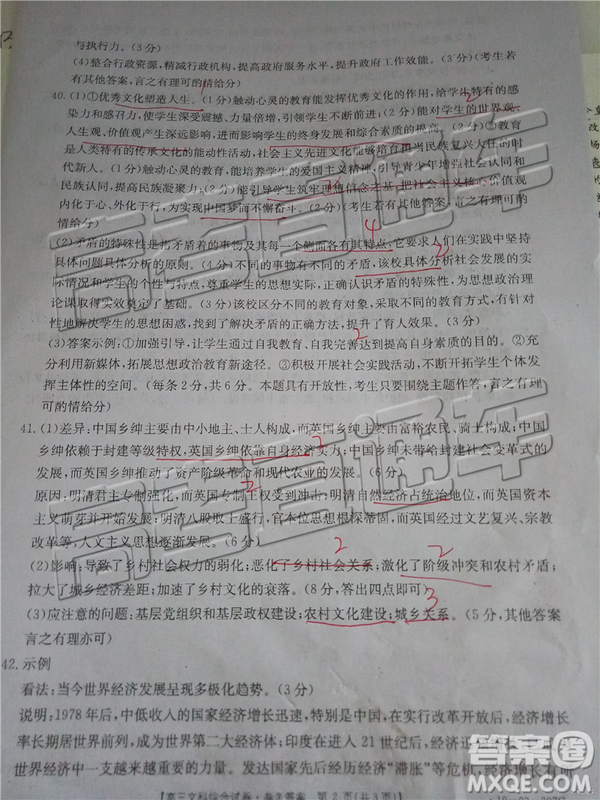 与执行力。(3分)
(4)整合行政资源,精减行政机构,提高政府服务水平,提升政府工作效能。(3分)(考生若
有其他答案,言之有理可酌情给分)
40.(1)①优秀文化塑造人生。(1分)触动心灵的教育能发挥优秀文化的作用,给学生特有的感
染力和感召力,使学生深受震撼、力量倍增,引领学生不断前进;(2分)能对学生的世界观、
人生观、价值观产生深远影响,进而影响学生的终身发展和综合素质的提高。(2分)②教育
是人类特有的传承文化的能动性活动,社会主义先进文化能够培育担当民族复兴大任的时
代新人。(1分)触动心灵的教育,能培养学生的爱国主义精神,引导青少年增强社会认同和
民族认同,提高民族凝聚力;(2分)能引导学生筑牢理想信念之基,把社会主义核心价值观
内化于心、外化于行,为实现中国梦而不懈奋斗。(2分)(考生若有其他答案,言之有理可酌
情给分)
(2)矛盾的特殊性是指矛盾着的事物及其每一个侧面各有其特点,它要求人们在实践中坚持
具体问题具体分析的原则。(4分)不同的事物有不同的矛盾,该校具体分析社会发展的实
际和学生的个性与特点,尊重学生的思想实际,正确认识矛盾的特殊性,为实现思想政治理
论课取得实效奠定了基础。(3分)该校区分不同的教育对象,采取不同的教育方式,有针对
性地解决学生的思想困惑,找到了解决矛盾的正确方法,提升了育人效果。(3分)
(3)答案示例:①加强引导,让学生通过自我教育、自我完善达到提高自身素质的目的。②充
分利用新媒体,拓展思想政治教育新途径。③积极开展社会实践活动,不断开拓学生个体发
挥主体性的空间。(每条2分,共6分。本题具有开放性,考生只要围绕主题作答,言之有理可
酌情给分)
41.(1)差异:中国乡绅主要由中小地主、士人构成,而英国乡绅主要由富裕农民、骑士构成;中国
乡绅依赖于封建等级特权,英国乡绅依靠自身经济实力;中国乡绅未带给封建社会变革式的
发展,而英国乡绅推动了资产阶级革命和现代农业的发展。(6分)
原因:明清君主专制强化,而英国专制王权受到冲击;明清自然经济占统治地位,而英国资本
主义萌芽并开始发展;明清八股取士盛行,官本位思想根深蒂固,而英国经过文艺复兴、宗教
改革等,人文主义思想逐渐发展。(6分)
(2)影响:导致了乡村社会权力的弱化;恶化了乡村社会关系;激化了阶级冲突和农村矛盾;
拉大了城乡经济差距;加速了乡村文化的衰落。(8分,答出四点即可)
(3)应注意的问题:基层党组织和基层政权建设;农村文化建设;城乡关系。(5分,其他答案
言之有理亦可)
42.示例
看法:当今世界经济发展呈现多极化趋势。(3分)
说明:1978年后,中低收入的国家经济增长迅速,特别是中国,在实行改革开放后,经济增长
率长期居世界前列,成为世界第二大经济体;印度在进入21世纪后,经济
世界经济中一支越来越重要的力量。发达国家经济“滞胀”等危机,经济增
【高三文科综合试卷·参考答案 第2页(共3页)】
高考直通车
高考直通车
答案圈